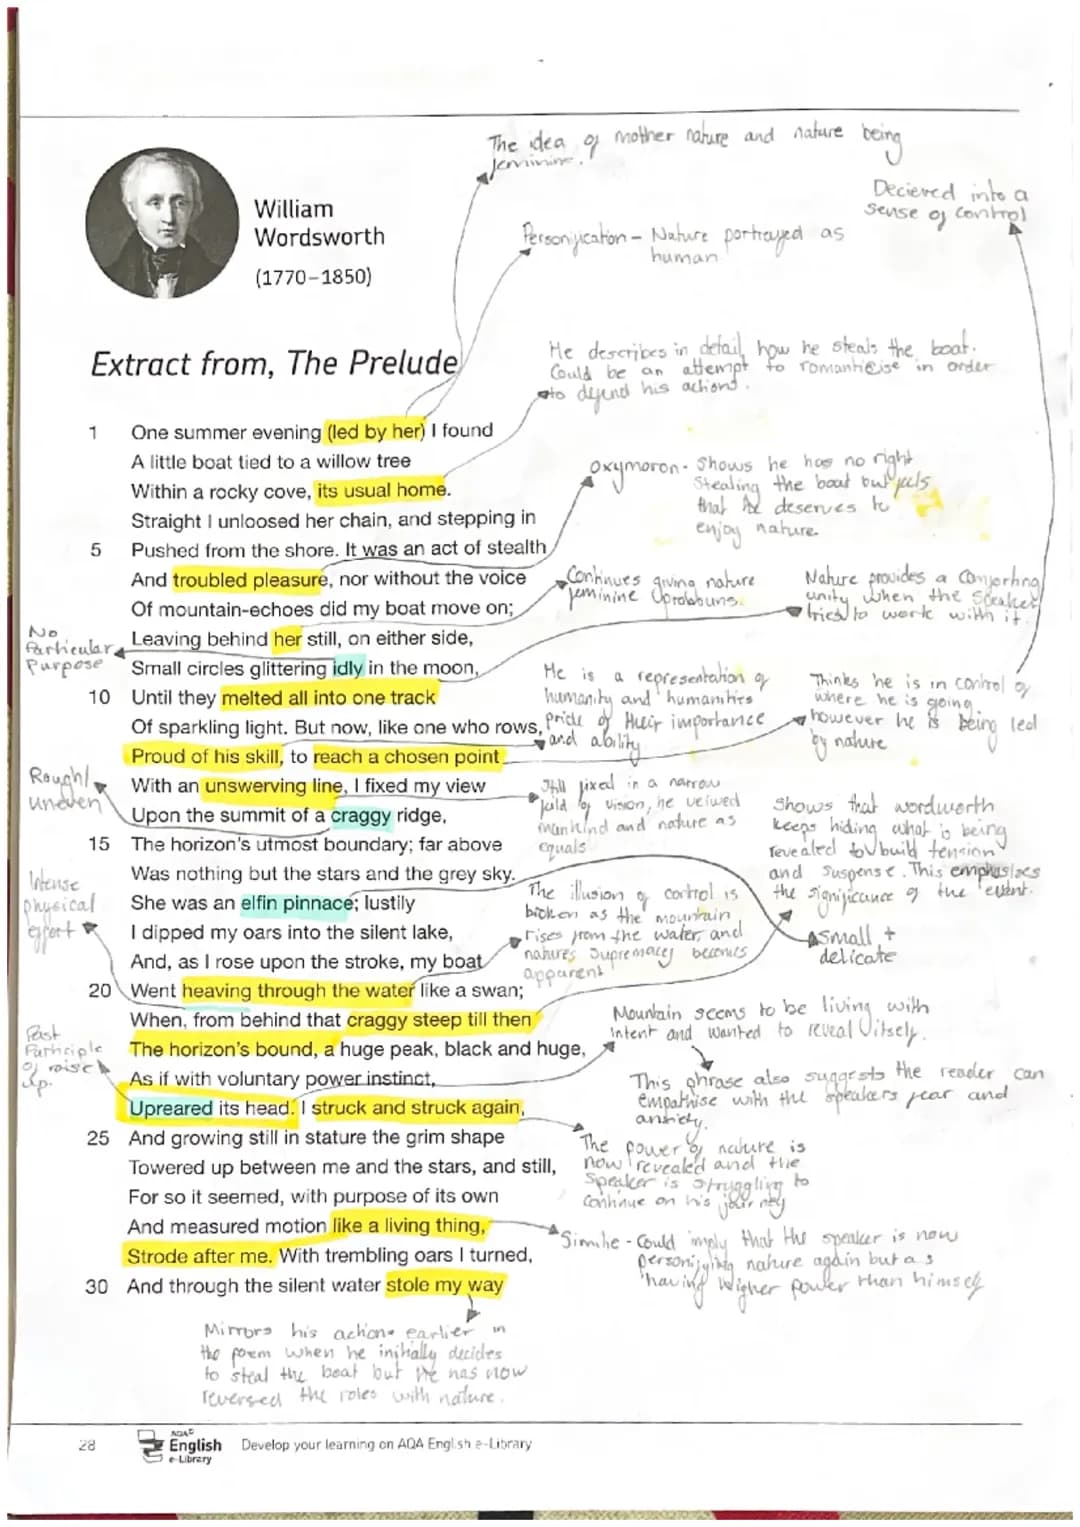 The idea of mother nature and nature being
feminine.
Decieved into a
sense of control
William
Wordsworth
(1770–1850)
Personification - Nature portrayed as
human
Extract from, The Prelude
He describes in detail how he steals the boat.
Could be an attempt to romanticise in order
to defend his actions.
1 One summer evening (led by her) I found
A little boat tied to a willow tree
Within a rocky cove, its usual home.
Straight I unloosed her chain, and stepping in
5 Pushed from the shore. It was an act of stealth
And troubled pleasure, nor without the voice
Of mountain-echoes did my boat move on;
Leaving behind her still, on either side,
Small circles glittering idly in the moon,
10 Until they melted all into one track
Of sparkling light. But now, like one who rows,
Proud of his skill, to reach a chosen point
With an unswerving line, I fixed my view
Upon the summit of a craggy ridge,
15 The horizon's utmost boundary; far above
Was nothing but the stars and the grey sky.
She was an elfin pinnace; lustily
I dipped my oars into the silent lake,
And, as I rose upon the stroke, my boat
20 Went heaving through the water like a swan;
When, from behind that craggy steep till then
The horizon's bound, a huge peak, black and huge,
As if with voluntary power instinct,
Upreared its head. I struck and struck again,
25 And growing still in stature the grim shape
Towered up between me and the stars, and still,
For so it seemed, with purpose of its own
And measured motion like a living thing,
Strode after me. With trembling oars I turned,
30 And through the silent water stole my way
Oxymoron - Shows he has no right
Stealing the boat but feels
that he deserves to
enjoy nature
Continues giving nature
feminine
Nature provides a comforting
unity when the speaker
tries to work with it
No
Particular
Purpose
He is a representation of
humanity and humanities
pride of their importance
and ability
Thinks he is in control of
where he is going
however he is being led
by nature
Rough/
uneven
Still fixed in a narrow
feild of vision, he veiwed
mankind and nature as
equals
Shows that wordworth
keeps hiding what is being
revealed to build tension
and suspense. This emphasises
the significance of the event.
Intense
physical
effort
The illusion of control is
broken as the mountain
rises from the water and
natures supremacey becomes
apparent
Small +
delicate
Past
Participle
of raise
up.
Mountain seems to be living with
intent and wanted to reveal itself.
This phrase also suggests the reader can
empathise with the speakers fear and
anxiety.
The power of nature is
now revealed and the
speaker is struggling to
continue on his journey
Similie - Could imply that the speaker is now
personifying nature again but as
having higher power than himself
Mirrors his actions earlier in
the poem when he initially decides
to steal the boat but he has now
reversed the roles with nature.
28 AQA English e-Library Develop your learning on AQA English e-Library